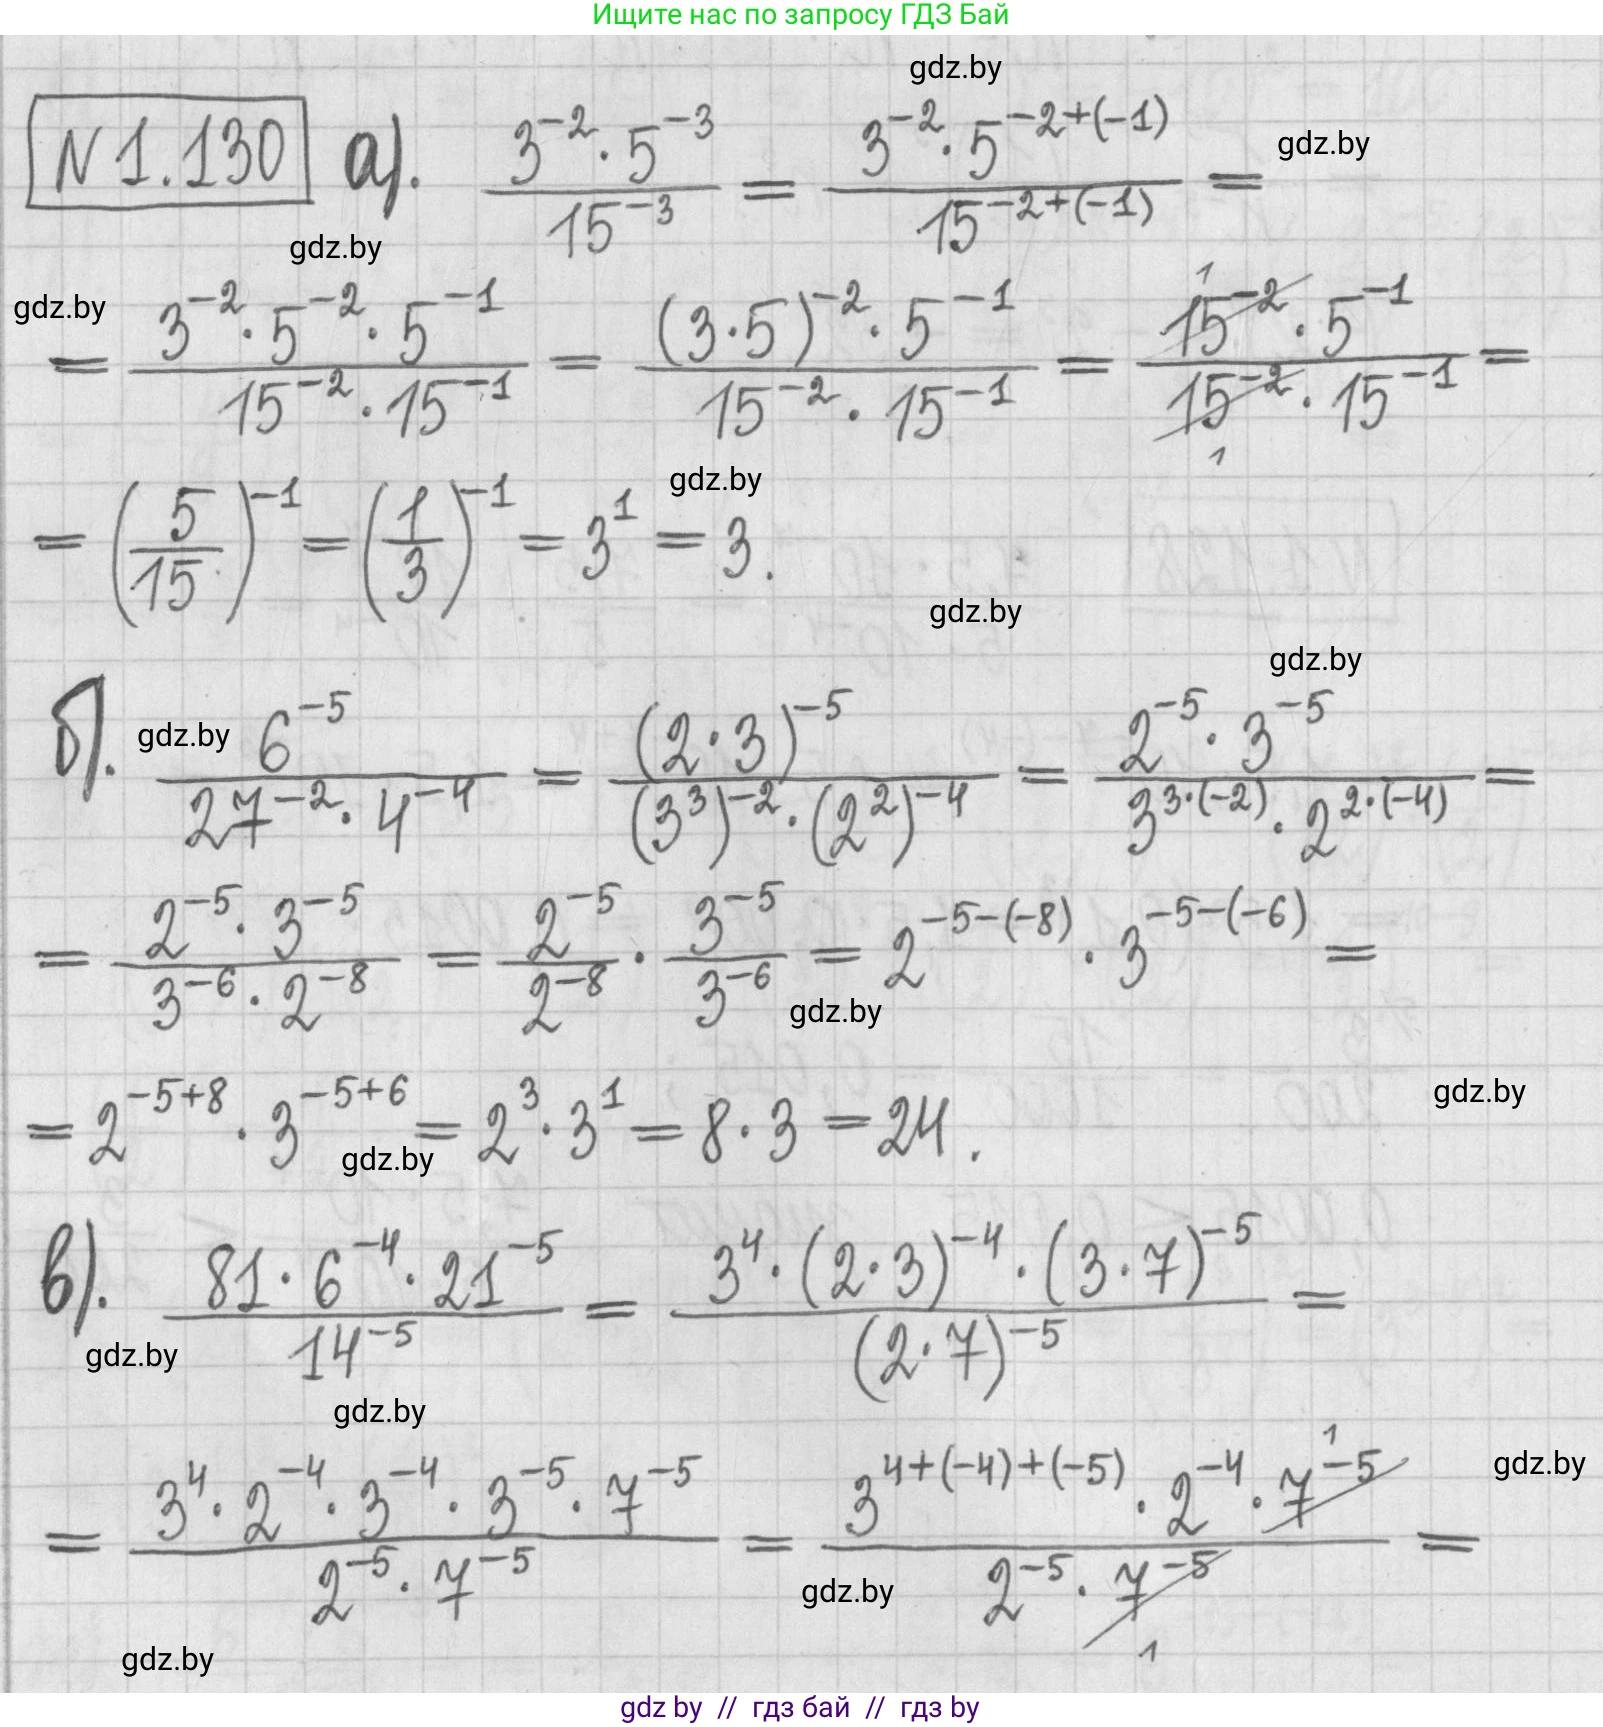 Ищите нас по запросу ГДЗ Бай
gdz.by
N 1.130 а). \frac{3^{-2} \cdot 5^{-3}}{15^{-3}} = \frac{3^{-2} \cdot 5^{-2+(-1)}}{15^{-2+(-1)}} =
gdz.by
gdz.by
gdz.by
= \frac{3^{-2} \cdot 5^{-2} \cdot 5^{-1}}{15^{-2} \cdot 15^{-1}} = \frac{(3 \cdot 5)^{-2} \cdot 5^{-1}}{15^{-2} \cdot 15^{-1}} = \frac{\cancel{15^{-2}}^{1} \cdot 5^{-1}}{\cancel{15^{-2}}_{1} \cdot 15^{-1}} =
gdz.by
= (\frac{5}{15})^{-1} = (\frac{1}{3})^{-1} = 3^{1} = 3.
gdz.by
gdz.by
б). \frac{6^{-5}}{27^{-2} \cdot 4^{-4}} = \frac{(2 \cdot 3)^{-5}}{(3^{3})^{-2} \cdot (2^{2})^{-4}} = \frac{2^{-5} \cdot 3^{-5}}{3^{3 \cdot (-2)} \cdot 2^{2 \cdot (-4)}} =
gdz.by
= \frac{2^{-5} \cdot 3^{-5}}{3^{-6} \cdot 2^{-8}} = \frac{2^{-5}}{2^{-8}} \cdot \frac{3^{-5}}{3^{-6}} = 2^{-5-(-8)} \cdot 3^{-5-(-6)} =
gdz.by
gdz.by
= 2^{-5+8} \cdot 3^{-5+6} = 2^{3} \cdot 3^{1} = 8 \cdot 3 = 24.
gdz.by
в). \frac{81 \cdot 6^{-4} \cdot 21^{-5}}{14^{-5}} = \frac{3^{4} \cdot (2 \cdot 3)^{-4} \cdot (3 \cdot 7)^{-5}}{(2 \cdot 7)^{-5}} =
gdz.by
gdz.by
gdz.by
= \frac{3^{4} \cdot 2^{-4} \cdot 3^{-4} \cdot 3^{-5} \cdot 7^{-5}}{2^{-5} \cdot 7^{-5}} = \frac{3^{4+(-4)+(-5)} \cdot 2^{-4} \cdot \cancel{7^{-5}}^{1}}{2^{-5} \cdot \cancel{7^{-5}}_{1}} =
gdz.by
gdz.by
gdz by // гдз бай // гдз by